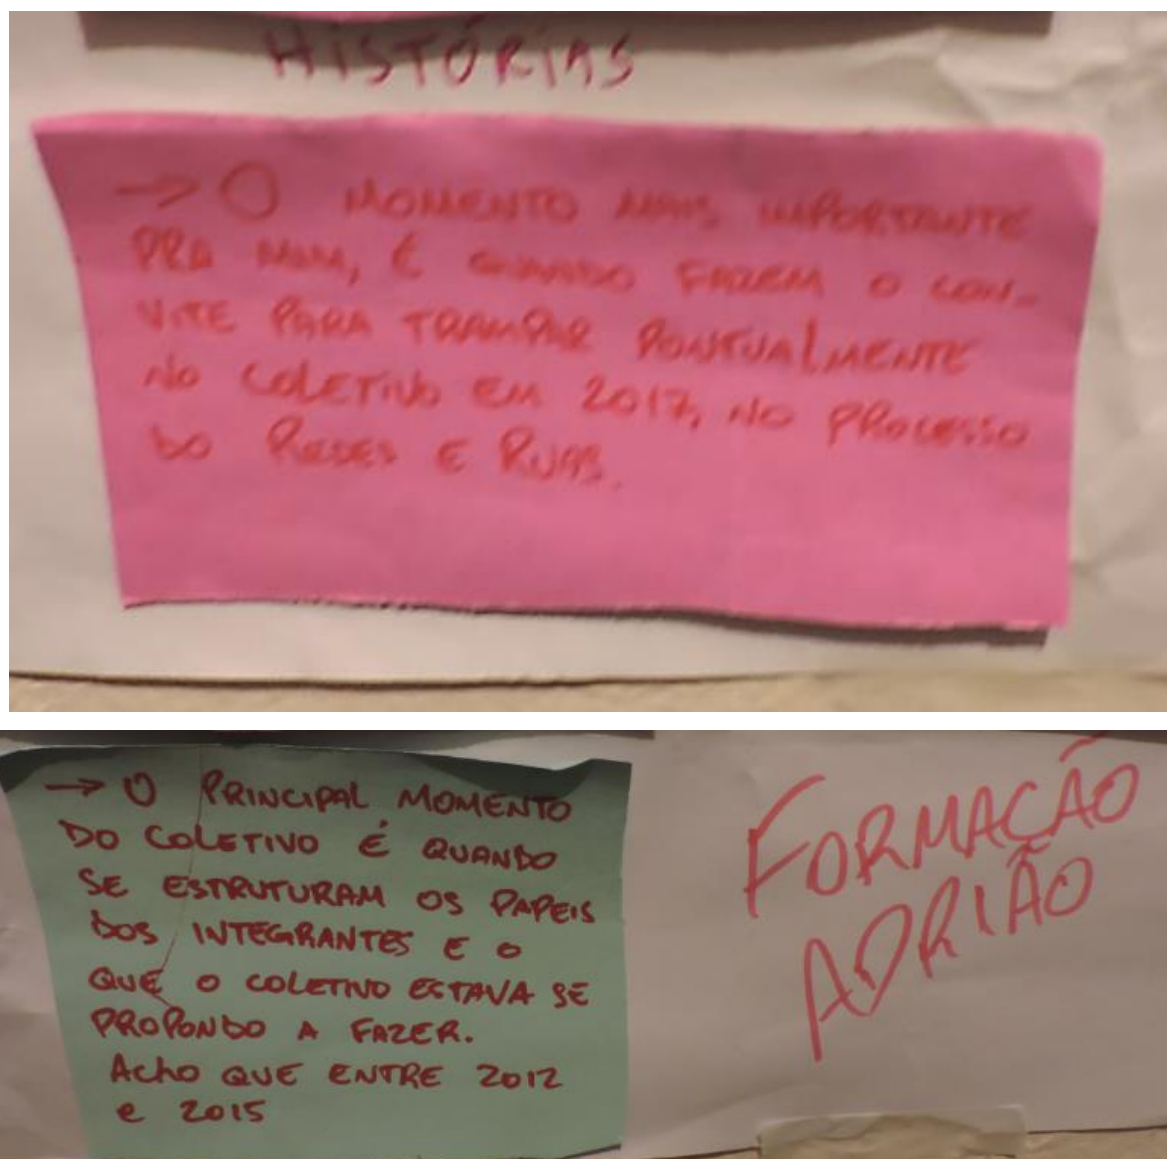 HISTÓRIAS
→ O MOMENTO MAIS IMPORTANTE
PRA MIM, É QUANDO FAZEM O CON-
VITE PARA TRAMPAR PONTUALMENTE
NO COLETIVO EM 2017, NO PROCESSO
DO REDES E RUAS.
→ O PRINCIPAL MOMENTO
DO COLETIVO É QUANDO
SE ESTRUTURAM OS PAPEIS
DOS INTEGRANTES E O
QUE O COLETIVO ESTAVA SE
PROPONDO A FAZER.
ACHO QUE ENTRE 2012
e 2015
FORMAÇÃO
ADRIÃO